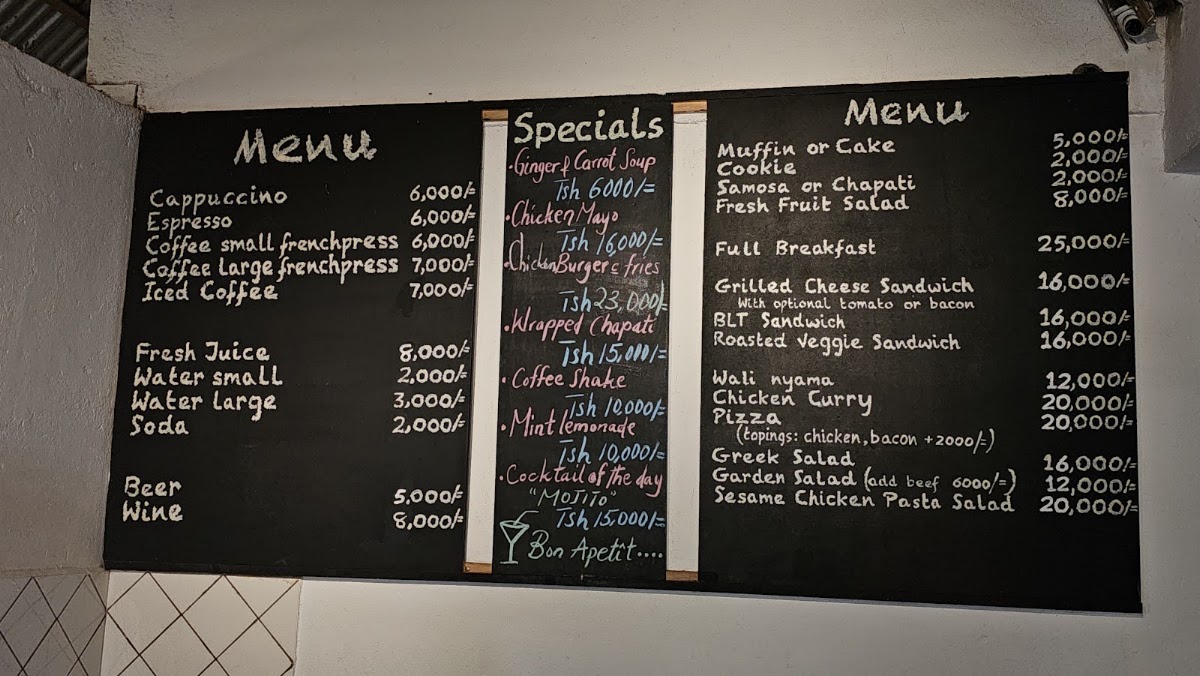 Menu
Cappuccino 6,000/=
Espresso 6,000/=
Coffee small frenchpress 6,000/=
Coffee large frenchpress 7,000/=
Iced Coffee 7,000/=
Fresh Juice 8,000/=
Water small 2,000/=
Water large 3,000/=
Soda 2,000/=
Beer 5,000/=
Wine 8,000/=
Specials
·Ginger & Carrot Soup
Tsh 6000/=
·Chicken Mayo
Tsh 16,000/=
·Chicken Burger & fries
Tsh 23,000/=
·Wrapped Chapati
Tsh 15,000/=
·Coffee Shake
Tsh 10,000/=
·Mint lemonade
Tsh 10,000/=
·Cocktail of the day
"MOJITO"
Tsh 15,000/=
Bon Apetit....
Menu
Muffin or Cake 5,000/=
Cookie 2,000/=
Samosa or Chapati 2,000/=
Fresh Fruit Salad 8,000/=
Full Breakfast 25,000/=
Grilled Cheese Sandwich 16,000/=
With optional tomato or bacon
BLT Sandwich 16,000/=
Roasted Veggie Sandwich 16,000/=
Wali nyama 12,000/=
Chicken Curry 20,000/=
Pizza 20,000/=
(topings: chicken, bacon +2000/=)
Greek Salad 16,000/=
Garden Salad (add beef 6000/=) 12,000/=
Sesame Chicken Pasta Salad 20,000/=